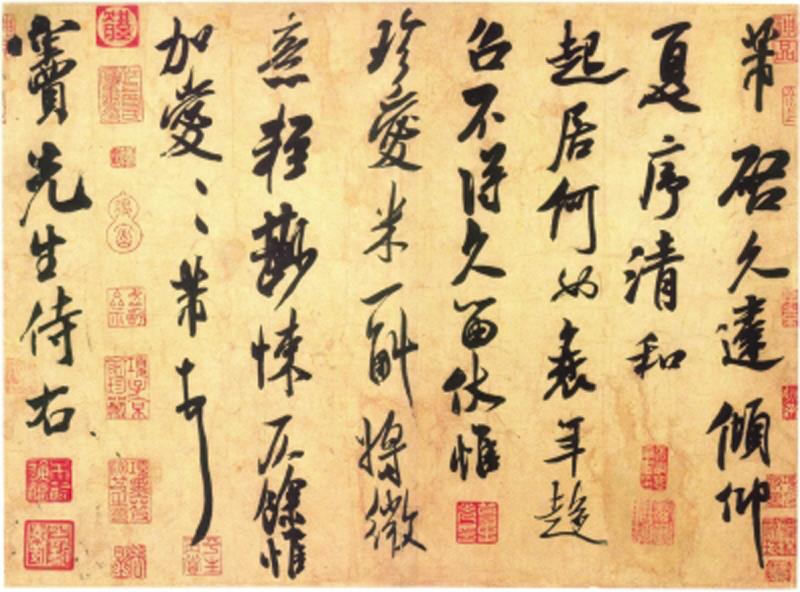 芾啓久違傾仰
夏序清和
起居何如衰年趍
召不得久留伏惟
珍愛米一斛將微
意輕尠悚仄餘惟
加愛〻〻芾頓首
竇先生侍右